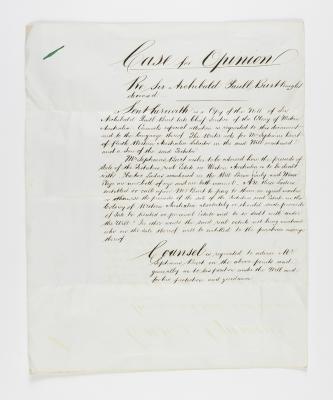 Case for Opinion
Re Sir Archibald Paull Burt Knight
deceased
Sent herewith is a Copy of the Will of Sir
Archibald Paull Burt late Chief Justice of the Colony of Western
Australia. Counsels especial attention is requested to this document
and to the language thereof. The Writer only for Mr Septimus Burt
of Perth Western Australia Solicitor in the said Will mentioned
and a Son of the said Testator
Mr Septimus Burt wishes to be advised how the proceeds of
sale of the Testators real Estate in Western Australia is to be dealt
with. The two Ladies mentioned in the Will Louisa Emily and
are now both of age and are both married. Are these Ladies
entitled to call upon Mr Burt to pay to them in equal moieties
or otherwise the proceeds of the sale of the Testators real Estate in the
Colony of Western Australia absolutely or should such proceeds
of Sale be treated as personal Estate and be so dealt with under
the Will? In other words the said real estate not being
who on the sale thereof will be entitled to the purchase money
thereof
Counsel is requested to advise Mr
Septimus Burt on the above points and
generally as to his position under the Will and
for his protection and guidance.